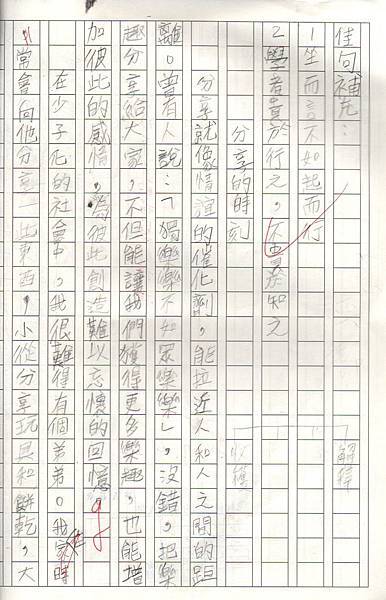 佳句補充：
1坐而言不如起而行
2學者貴於行之，不貴於知之
分享的時刻
分享就像情誼的催化劑，能拉近人和人之間的距
離。曾有人說：「獨樂樂不如眾樂樂」，沒錯，把樂
趣分享給大家，不但能讓我們獲得更多樂趣，也能增
加彼此的感情，為彼此創造難以忘懷的回憶。
在少子化的社會中，我很難得有個弟弟。我時
常會向他分享一些東西，小從分享玩具和餅乾，大
解釋
收獲